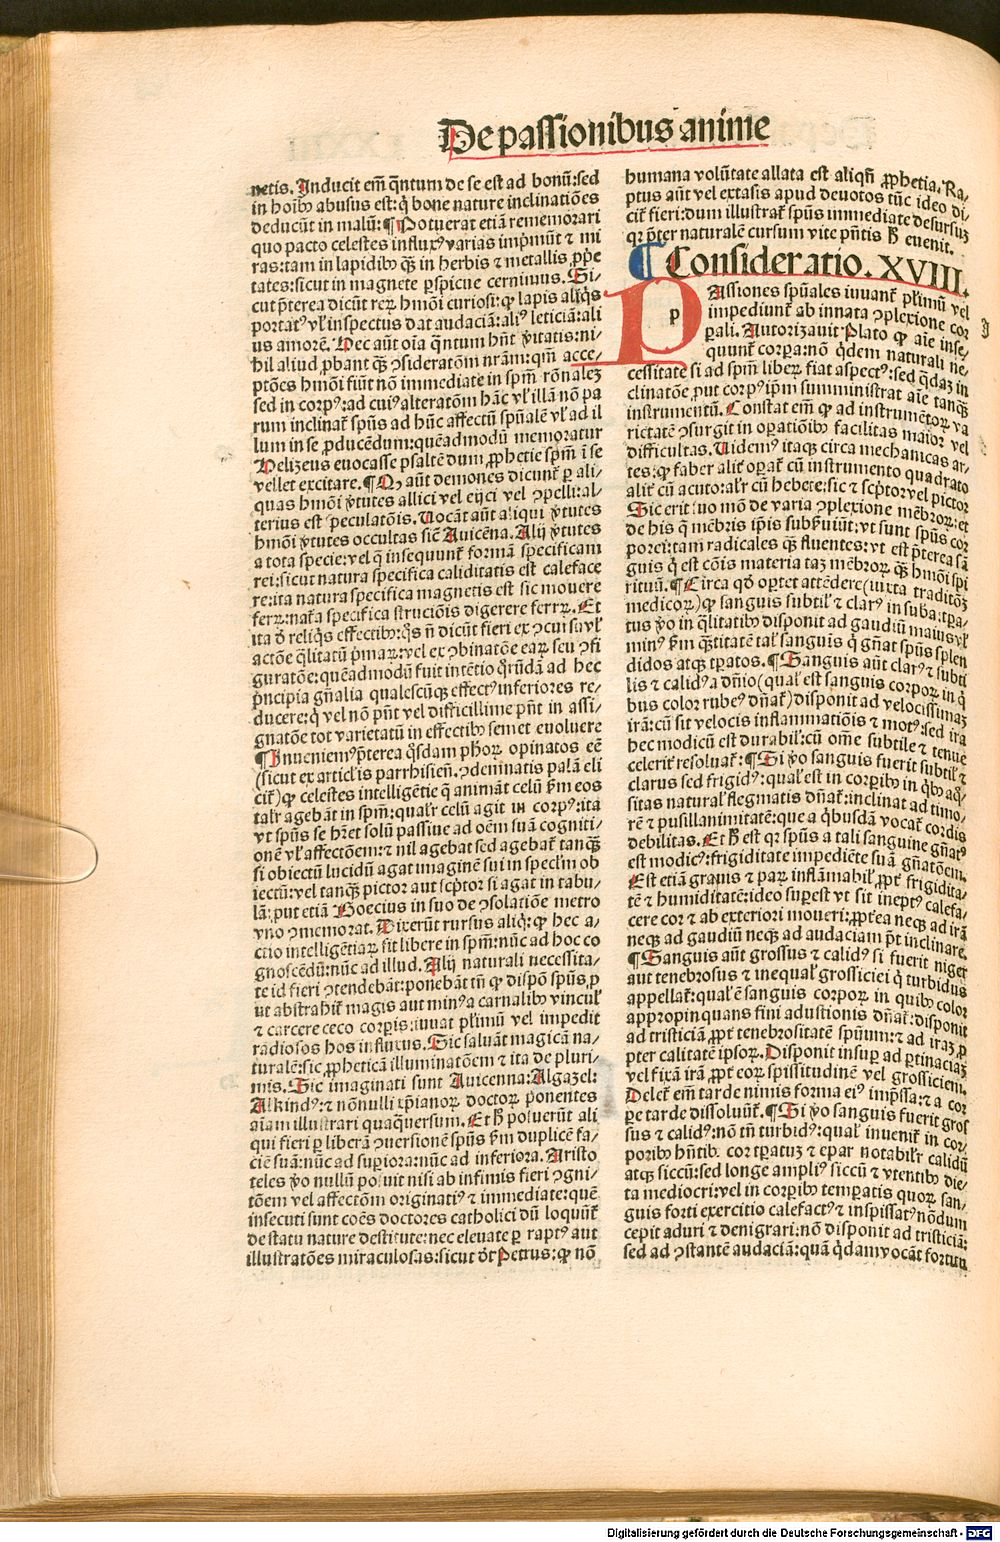 De passionibus anime
netis. Inducit em̄ q̄ntum de se est ad bonū: sed
in hoīb⁹ abusus est: q̇ bone nature inclinatiões
deducūt in malū: ¶ Potuerat etiā rememorari
quo pacto celestes influxꝰ varias imp̄mūt ⁊ mi
ras: tam in lapidib⁹ q̄ꝫ in herbis ⁊ metallis ꝓpe
tates: sicut in magnete ꝑspicue cernimus. Si/
cut p̄terea dicūt reꝝ hmōi curiosi: ꝙ lapis aliq̄s
portatꝰ vl̓ inspectus dat audaciā: aliꝰ leticiā: ali
us amorē. Hec aūt oīa q̄ntum hn̄t v̄itatis: ni/
hil aliud ꝓbant q̄ꝫ ꝯsideratōm nr̄am: qm̄ acce/
ptões hmōi fiūt nō immediate in spm̄ rōnalez
sed in corpꝰ: ad cuiꝰ alteratōm hāc vl̓ illā nō pa
rum inclinat̄ spūs ad hūc affectū spūalē vl̓ ad il
lum in se ꝓducēdum: quēadmodū memoratur
Helizeus euocasse psaltē dum ꝓphetie spm̄ ī se
vellet excitare. ¶ Qꝫ aūt demones dicunt̄ ꝑ ali/
quas hmōi v̄tutes allici vel eijci vel ꝯpelli: al/
terius est speculatōis. Uocāt aūt aliqui v̄tutes
hmōi v̄tutes occultas sic̄ Auicēna. Alij v̄tutes
a tota specie: vel q̄ insequunt̄ formā specificam
rei: sicut natura specifica caliditatis est caleface
re: ita natura specifica magnetis est sic mouere
ferꝝ: nat̄a specifica strucionis digerere ferrꝝ. Et
ita ꝺ reliq̄s effectib⁹: q̄s n̄ dicūt fieri ex ꝯcursu vl̓
actõe q̄litatū p̄maꝝ: vel ex ꝯbinatõe eaꝝ seu ꝯfi
guratõe: quēadmodū fuit intētio q̄rūdā ad hec
p̄ncipia gn̄alia qualescūqꝫ effectꝰ inferiores re/
ducere: q̇ vel nō pn̄t vel difficillime pn̄t in assi/
gnatõe tot varietatū in effectib⁹ semet euoluere
¶ Inueniemꝰ p̄terea q̄sdam ph̓oꝝ opinatos eē
(sicut ex articl̓is parrhisien̄. ꝯdemnatis palā eli
cit̄) ꝙ celestes intelligētie q̄ animāt celū ẜm eos
tal̓r agebāt in spm̄: qual̓r celū agit in corpꝰ: ita
vt spūs se hr̄et solū passiue ad oēm suā cogniti/
onē vl̓ affectōem: ⁊ nil agebat sed agebat̄ tanq̄ꝫ
si obiectū lucidū agat imaginē sui in specl̓m ob
iectū: vel tanq̄ꝫ pictor aut sc̄ptor si agat in tabu/
lā: put etiā Boecius in suo de ꝯsolatiōe metro
vno ꝯmemorat. Dixerūt rursus aliq̇: ꝙ hec a/
ctio intelligētiaꝝ fit libere in spm̄: nūc ad hoc co
gnoscēdū: nūc ad illud. Alij naturali necessita/
te id fieri ꝯtendebāt: ponebāt tn̄ ꝙ dispō spūs, ꝓ
ut abstrahit̄ magis aut minꝰ a carnalib⁹ vincul̓
⁊ carcere ceco corꝑis: iuuat pl̓imū vel impedit
radiosos hos influxus. Sic saluāt magicā na/
turalē: sic ꝓpheticā illuminatōem ⁊ ita de pluri/
mis. Sic imaginati sunt Auicenna: Algazel:
Alkindꝰ: ⁊ nōnulli xp̄ianoꝝ doctoꝝ ponentes
aīam illustrari quaq̄uersum. Et ẖ posuerūt ali
qui fieri ꝑ liberā ꝯuersionē spūs ẜm duplicē fa/
ciē suā: nūc ad suꝑiora: nūc ad inferiora. Aristo
teles v̊o nullū posuit nisi ab infimis fieri ꝯgni/
tōem vel affectōm originatiꝰ ⁊ immediate: quē
insecuti sunt coēs doctores catholici dū loquūt̄
de statu nature destitute: nec eleuate ꝑ raptꝰ aut
illustratōes miraculosas: sicut ꝺr̄ Petrus: ꝙ nō
humana volūtate allata est aliqn̄ ꝓphetia. Ra/
ptus aūt vel extasis apud deuotos tūc ideo di/
cit̄ fieri: dum illustrat̄ spūs immediate desursuꝫ
q̄ꝝ p̄ter naturalē cursum vite p̄ntis ẖ euenit.
¶ Consideratio. XVIII.
PAssiones spūales iuuant̄ pl̓imū vel
impediunt̄ ab innata ꝯplexione cor
ꝑali. Autorizauit Plato ꝙ aīe inse/
quunt̄ corꝑa: nō q̇dem naturali ne/
cessitate si ad spm̄ libeꝝ fiat aspectꝰ: sed q̄daꝫ in
clinatōe ꝓut corpꝰ ip̄m sumministrat aīe tanq̄ꝫ
instrumentū. Constat em̄ ꝙ ad instrumētoꝝ va
rietatē ꝯsurgit in oꝑatiōib⁹ facilitas maior vel
difficultas. Uidemꝰ itaqꝫ circa mechanicas ar/
tes: ꝙ faber alit̄ oꝑat̄ cū instrumento quadrato
alit̄ cū acuto: al̓r cū hebete: sic ⁊ sc̄ptor vel pictor
Sic erit suo mō de varia ꝯplexione mēbroꝝ: et
de his q̄ mēbris ip̄is subẜuiūt: vt sunt spūs cor
porei: tam radicales q̄ꝫ fluentes: vt est p̄terea sā
guis q̇ est cōis materia taꝫ mēbroꝝ q̄ꝫ hmōi spi
rituū. ¶ Circa qd̓ oꝑtet attēdere (iuxta traditōꝫ
medicoꝝ) ꝙ sanguis subtil̓ ⁊ clarꝰ in suba: tꝑa/
tus v̊o in q̄litatib⁹ disponit ad gaudiū maius vl̓
minꝰ ẜm q̄ntitatē tal̓ sanguīs q̇ gn̄at spūs splen
didos atqꝫ tꝑatos. ¶ Sanguis aūt clarꝰ ⁊ subti
lis ⁊ calidꝰ a dn̄io (qual̓ est sanguis corpoꝝ in q̇
bus color rubeꝰ dn̄at̄) disponit ad velocissimaꝫ
irā: cū sit velocis inflammatiōis ⁊ motꝰ: sed ira
hec modicū est durabil̓: cū om̄e subtile ⁊ tenue
celerit̄ resoluat̄: ¶ Si v̊o sanguis fuerit subtil̓ ⁊
clarus sed frigidꝰ: qual̓ est in corꝑib⁹ in q̇b⁹ aq̄/
sitas natural̓ flegmatis dn̄at̄: inclinat ad timo/
rē ⁊ pusillanimitatē: que a q̇busdā vocat̄ cordis
debilitas. Et ẖ est qꝛ spūs a tali sanguine gn̄atꝰ
est modicꝰ: frigiditate impediēte suā gn̄atōem.
Est etiā grauis ⁊ paꝝ inflāmabil̓, ꝓpt̄ frigidita/
tē ⁊ humiditatē: ideo suꝑest vt sit ineptꝰ calefa/
cere cor ⁊ ab exteriori moueri: ꝓpt̄ea neqꝫ ad irā
neqꝫ ad gaudiū neqꝫ ad audaciam p̄t inclinare.
¶ Sanguis aūt grossus ⁊ calidꝰ si fuerit niger
aut tenebrosus ⁊ inequal̓ grossiciei q̇ turbidus
appellat̄: qual̓ ē sanguis corpoꝝ in quib⁹ color
appropinquans fini adustionis dn̄at̄: disponit
ad tristiciā, ꝓpt̄ tenebrositatē spūum: ⁊ ad iraꝫ ꝓ
pter calitatē ipsoꝝ. Disponit insuꝑ ad ꝑtinaciaꝫ
vel fixā irā, ꝓpt̄ eoꝝ spissitudinē vel grossiciem.
Delet̄ em̄ tarde nimis forma eiꝰ imp̄ssa: ⁊ a cor
ꝑe tarde dissoluūt̄. ¶ Si v̊o sanguis fuerit gros
sus ⁊ calidꝰ: nō tn̄ turbidꝰ: qual̓ inuenit̄ in cor/
porib⁹ hn̄tib. cor tꝑatuꝫ ⁊ epar notabil̓r calidū
atqꝫ siccū: sed longe ampliꝰ siccū ⁊ vtentib⁹ die/
ta mediocri: vel in corꝑib⁹ temꝑatis quoꝝ san/
guis forti exercitio calefactꝰ ⁊ inspissatꝰ nōdum
cepit aduri ⁊ denigrari: nō disponit ad tristiciā:
sed ad ꝯstantē audaciā: quā q̇dam vocāt fortitu
Digitalisierung gefördert durch die Deutsche Forschungsgemeinschaft - DFG